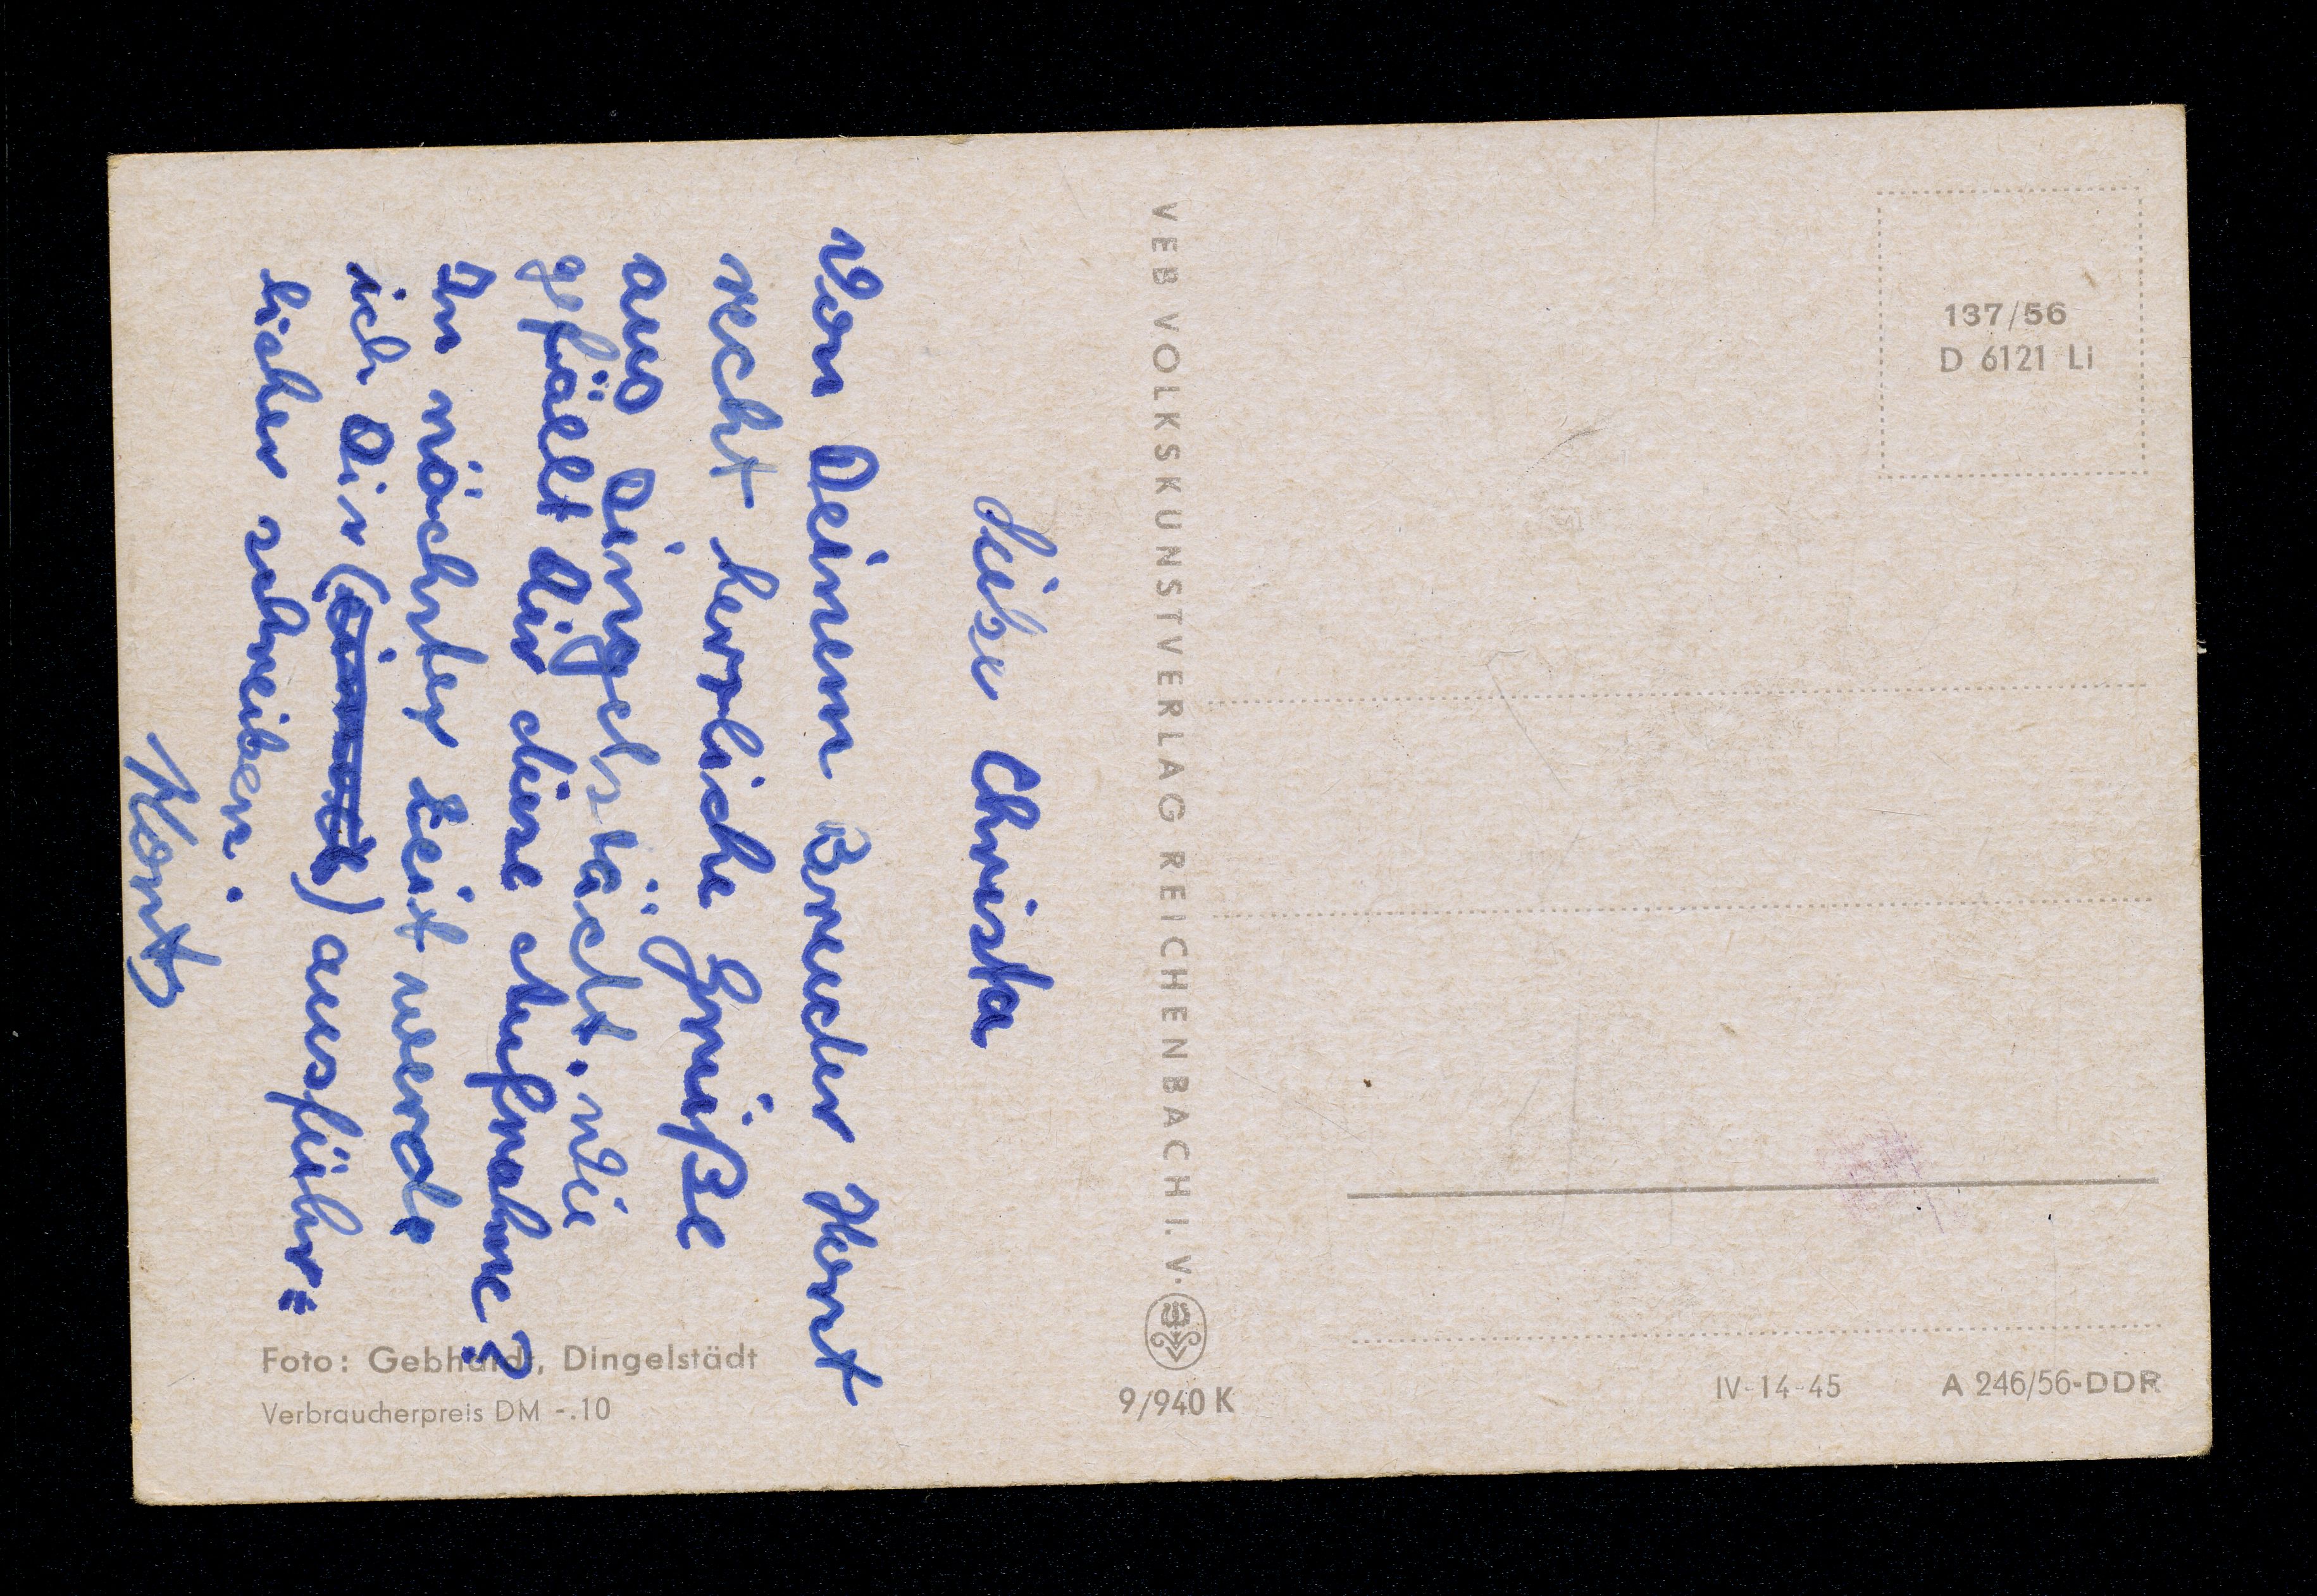 Liebe Christa
Von Deinem Bruder Horst
recht herzliche Grüße
aus Dingelstädt. Wie
gefällt Dir diese Aufnahme?
In nächster Zeit werde
ich Dir () ausführ=
licher schreiben.
Horst
VEB VOLKSKUNSTVERLAG REICHENBACH I. V.
137/56
D 6121 Li
Foto: Gebhardt, Dingelstädt
Verbraucherpreis DM -.10
9/940 K
IV-14-45
A 246/56-DDR